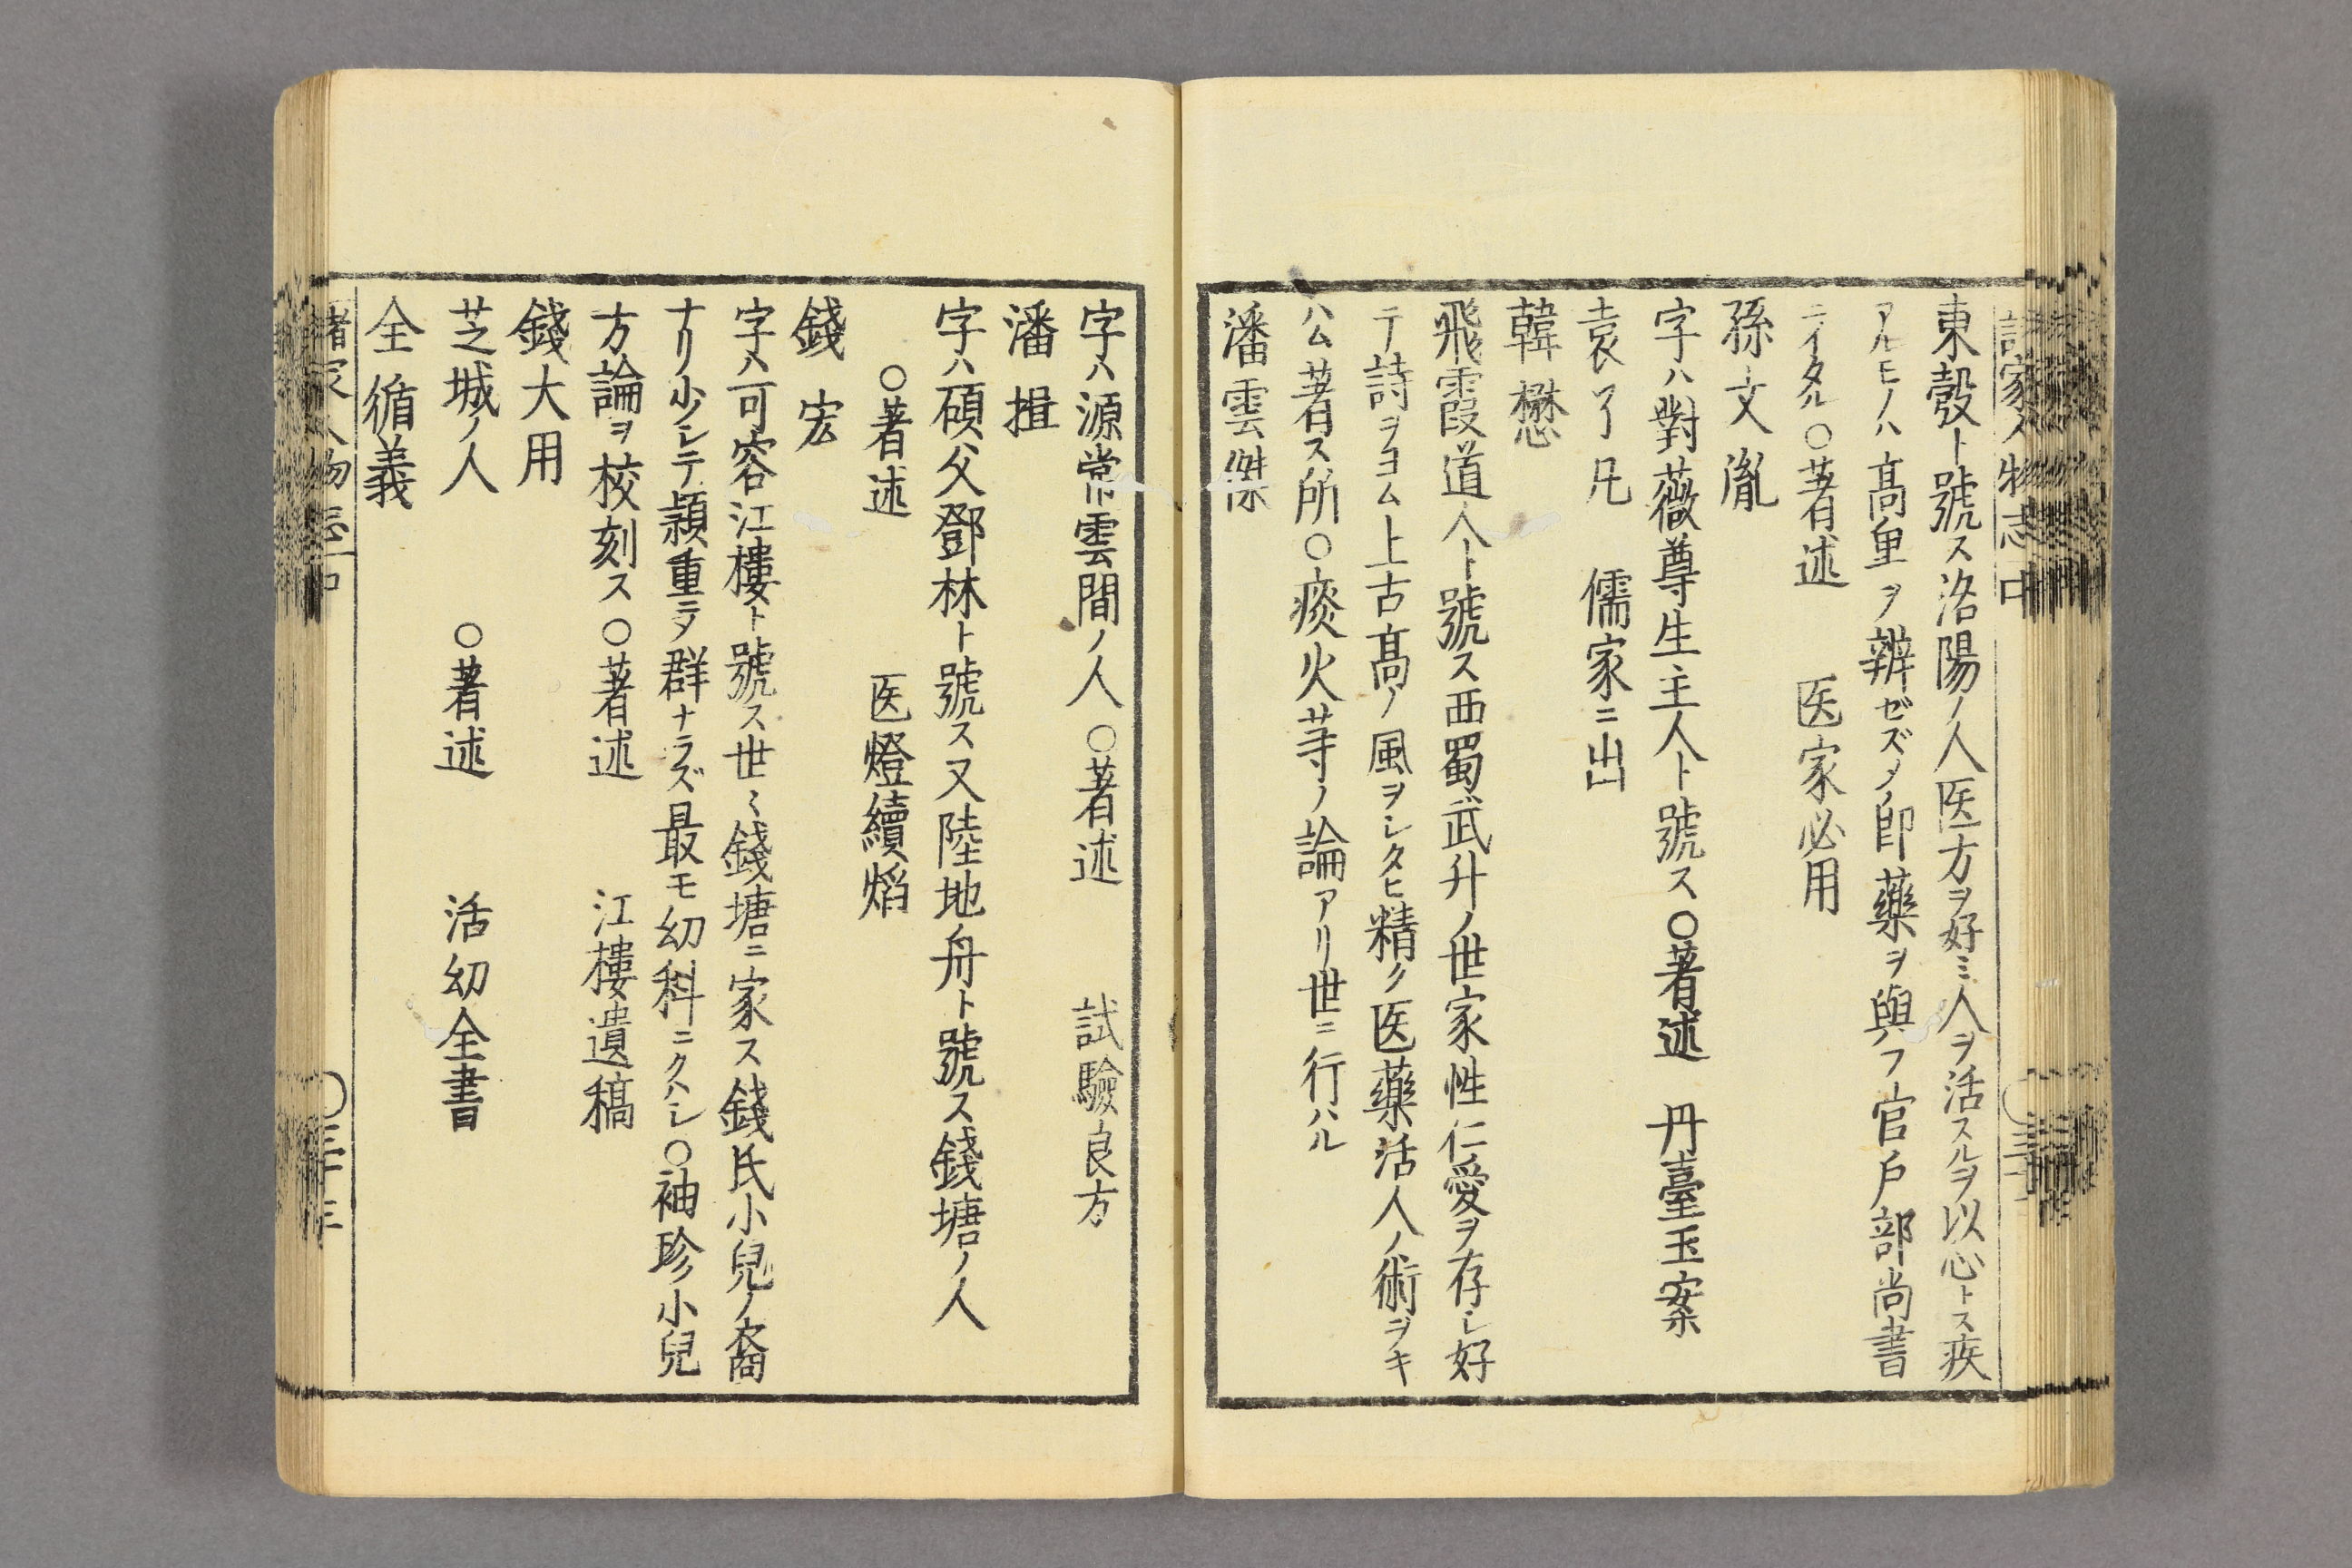 諸家人物志中
東殼ト號ス洛陽ノ人医方ヲ好ミ人ヲ活スルヲ以心トス疾
アルモノハ高卑ヲ辨ゼズメ即藥ヲ與フ官戶部尚書
ニイタル○著述　医家必用
孫文胤
字ハ對薇尊生主人ト號ス○著述　丹臺玉案
袁了凡　儒家ニ出
韓懋
飛霞道人ト號ス西蜀武升ノ世家性仁愛ヲ存シ好
テ詩ヲヨム上古高ノ風ヲシタヒ精ク医藥活人ノ術ヲキ
ハム著ス所○痰火䒭ノ論アリ世ニ行ハル
潘雲傑
字ハ源常雲間ノ人○著述　試驗良方
潘揖
字ハ碩父鄧林ト號ス又陸地舟ト號ス錢塘ノ人
○著述　医燈續焰
錢宏
字ハ可容江樓ト號ス世〻錢塘ニ家ス錢氏小兒ノ裔
ナリ少シテ頴重ニヲ群ナラズ最モ幼科ニクハシ○袖珍小兒
方論ヲ校刻ス○著述　江樓遺稿
錢大用
芝城ノ人　○著述　活幼全書
全循義
諸家人物志中